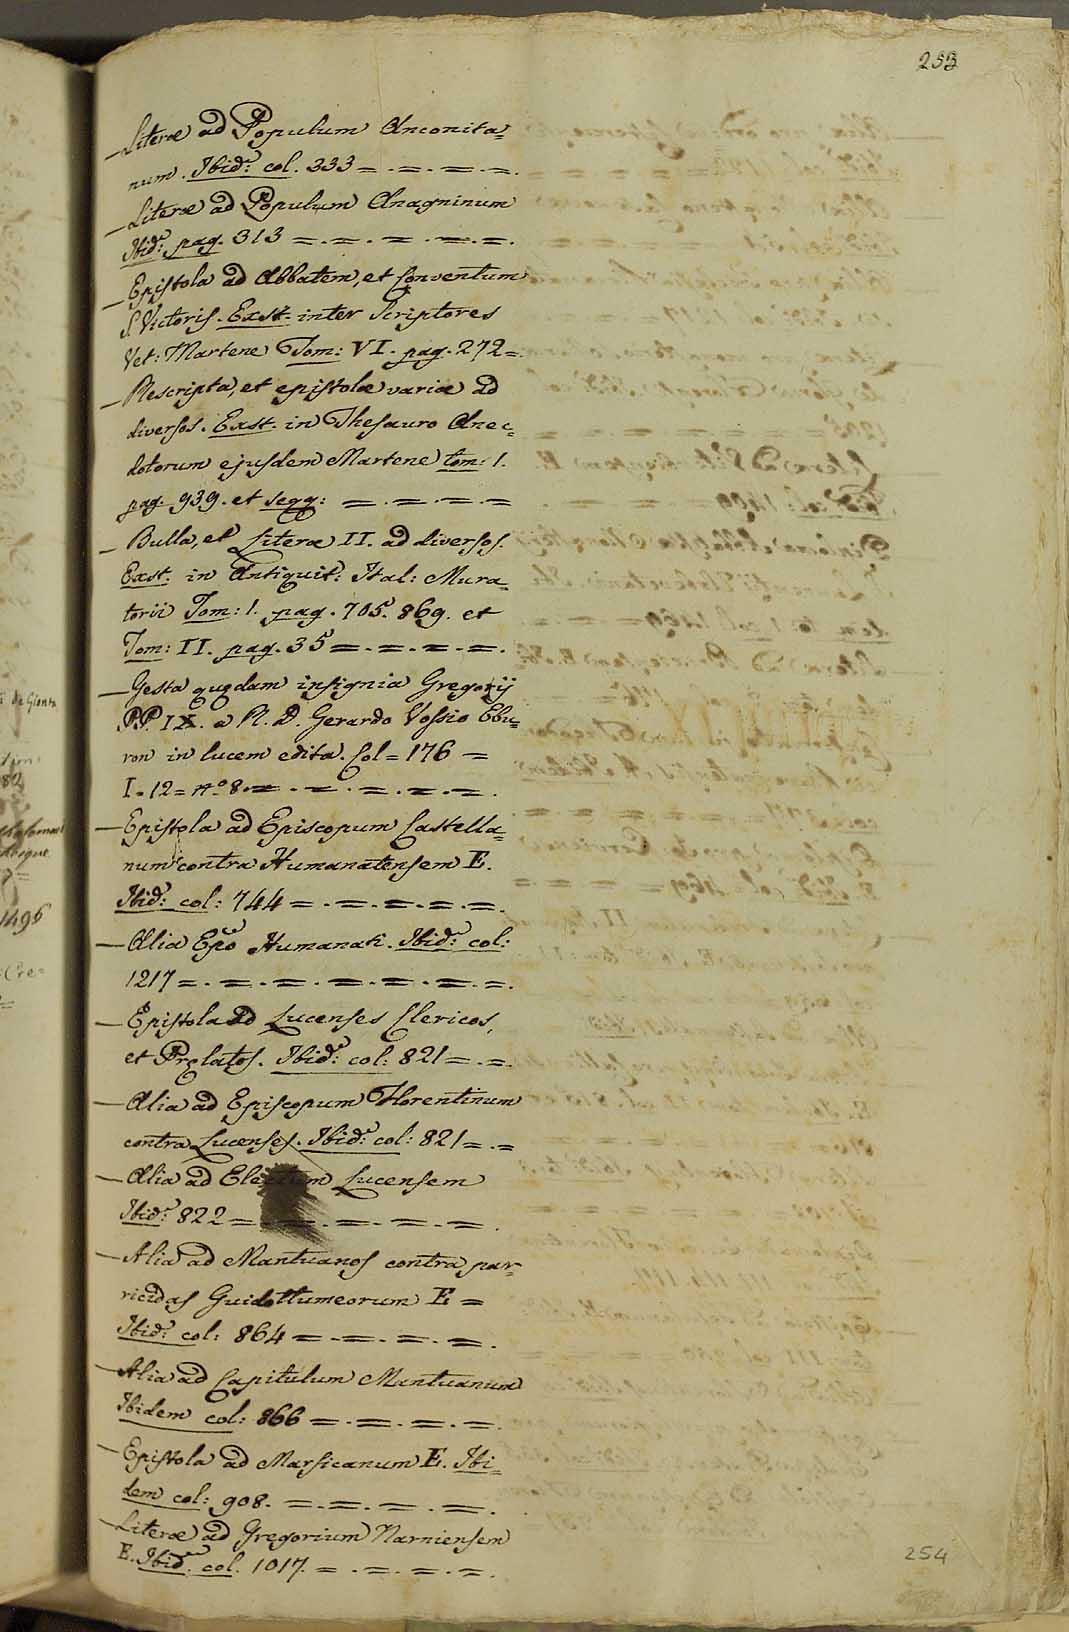 253
— Literæ ad Populum Anconita=
num. Ibid:ᵉ col. 333 = . = . = . = .
— Literæ ad Populum Anagninum
Ibid:ᵉ pag. 313 = . = . = . = . = .
— Epistola ad Abbatem, et Conventum
S. Victoris. Exst. inter Scriptores
Vet: Martene Tom: VI. pag. 272 = .
— Rescripta, et epistolæ variæ ad
diversos. Exst. in Thesauro Anec=
dotorum ejusdem Martene tom: 1.
pag. 939. et seqq: = . = . = . =
— Bulla, et Literæ II. ad diversos.
Exst. in Antiquit: Ital: Mura=
torii Tom: 1. pag. 705. 869. et
Tom: II. pag. 35 = . = . = . = .
— Gesta quędam insignia Gregorij
P.P. IX. a R. D. Gerardo Vossio Ebu=
ron in lucem edita. Col = 176 =
I. 12 = nº 8. = . = . = . = . = .
— Epistola ad Episcopum Castella=
num contra Humanatensem E.
Ibid:ᵉ col: 744 = . = . = . = . = .
— Alia Epõ Humanati. Ibid:ᵉ col:
1217 = . = . = . = . = . = . = .
— Epistola ad Lucenses Clericos,
et Pręlatos. Ibid:ᵉ col: 821 = . = .
— Alia ad Episcopum Florentinum
contra Lucenses. Ibid:ᵉ col: 821 = . =
— Alia ad Electum Lucensem
Ibid:ᵉ 822 = . = . = . = . = .
— Alia ad Mantuanos contra par=
ricidas Guidottumeorum E =
Ibid:ᵉ col: 864 = . = . = . = .
— Alia ad Capitulum Mantuanum
Ibidem col: 866 = . = . = . = .
— Epistola ad Marsicanum E. Ibi=
dem col: 908. = . = . = . = .
— Literæ ad Gregorium Narniensem
E. Ibid.ᵉ col. 1017. = . = . = . = .
254